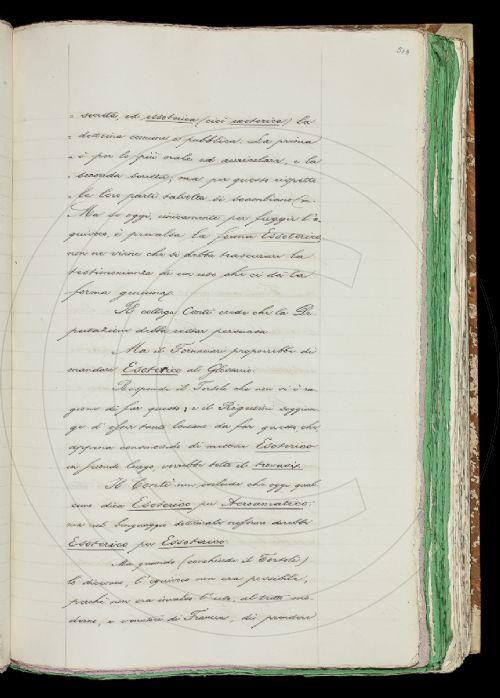 319
„ secreta, ed essoterica (cioè exoterica) la
„ dottrina comune e pubblica. La prima
„ è per lo più orale ed auricolare, e la
„ seconda scritta, ma per questo rispetto
„ le loro parti talvolta si scambiano „
Ma se oggi, unicamente per fuggir l'e-
quivoco, è prevalsa la forma Essoterico
non ne viene che si debba trascurare la
testimonianza di un uso che ci dà la
forma genuina.
Il collega Conti crede che la De-
putazione debba restar persuasa
Ma il Tornavari proporrebbe di
mandare Esoterico al Glossario.
Risponde il Tortoli che non vi è ra-
gione di far questo; e il Rigutini soggiun-
ge d'esser tanto lontano da far questo, che
appena consentirebbe di mettere Esoterico
in secondo luogo, vorrebbe tutti di trovarsi.
Il Conti non esclude che oggi qual-
cuno dica Esoterico per Acroamatico;
ma nel linguaggio dottrinale nessuno direbbe
Esoterico per Essoterico.
Ma quando (conchiude il Tortoli)
lo dicevano, l'equivoco non era possibile,
perchè non era invalso l'uso, al tutto mo-
derno, e venutoci di Francia, di prendere